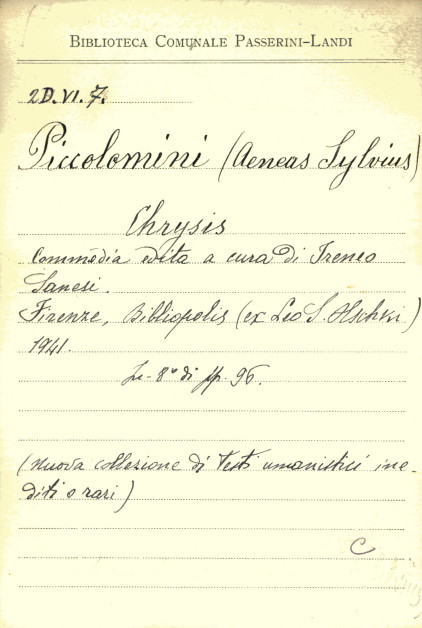 BIBLIOTECA COMUNALE PASSERINI-LANDI
2D.VI.7.
Piccolomini (Aeneas Sylvius)
Chrysis
Commedia edita a cura di Ireneo
Sanesi.
Firenze, Bibliopolis (ex Leo S. Olschki)
1941.
In-8° di pp. 96.
(Nuova collezione di Testi umanistici ine-
diti o rari)
C